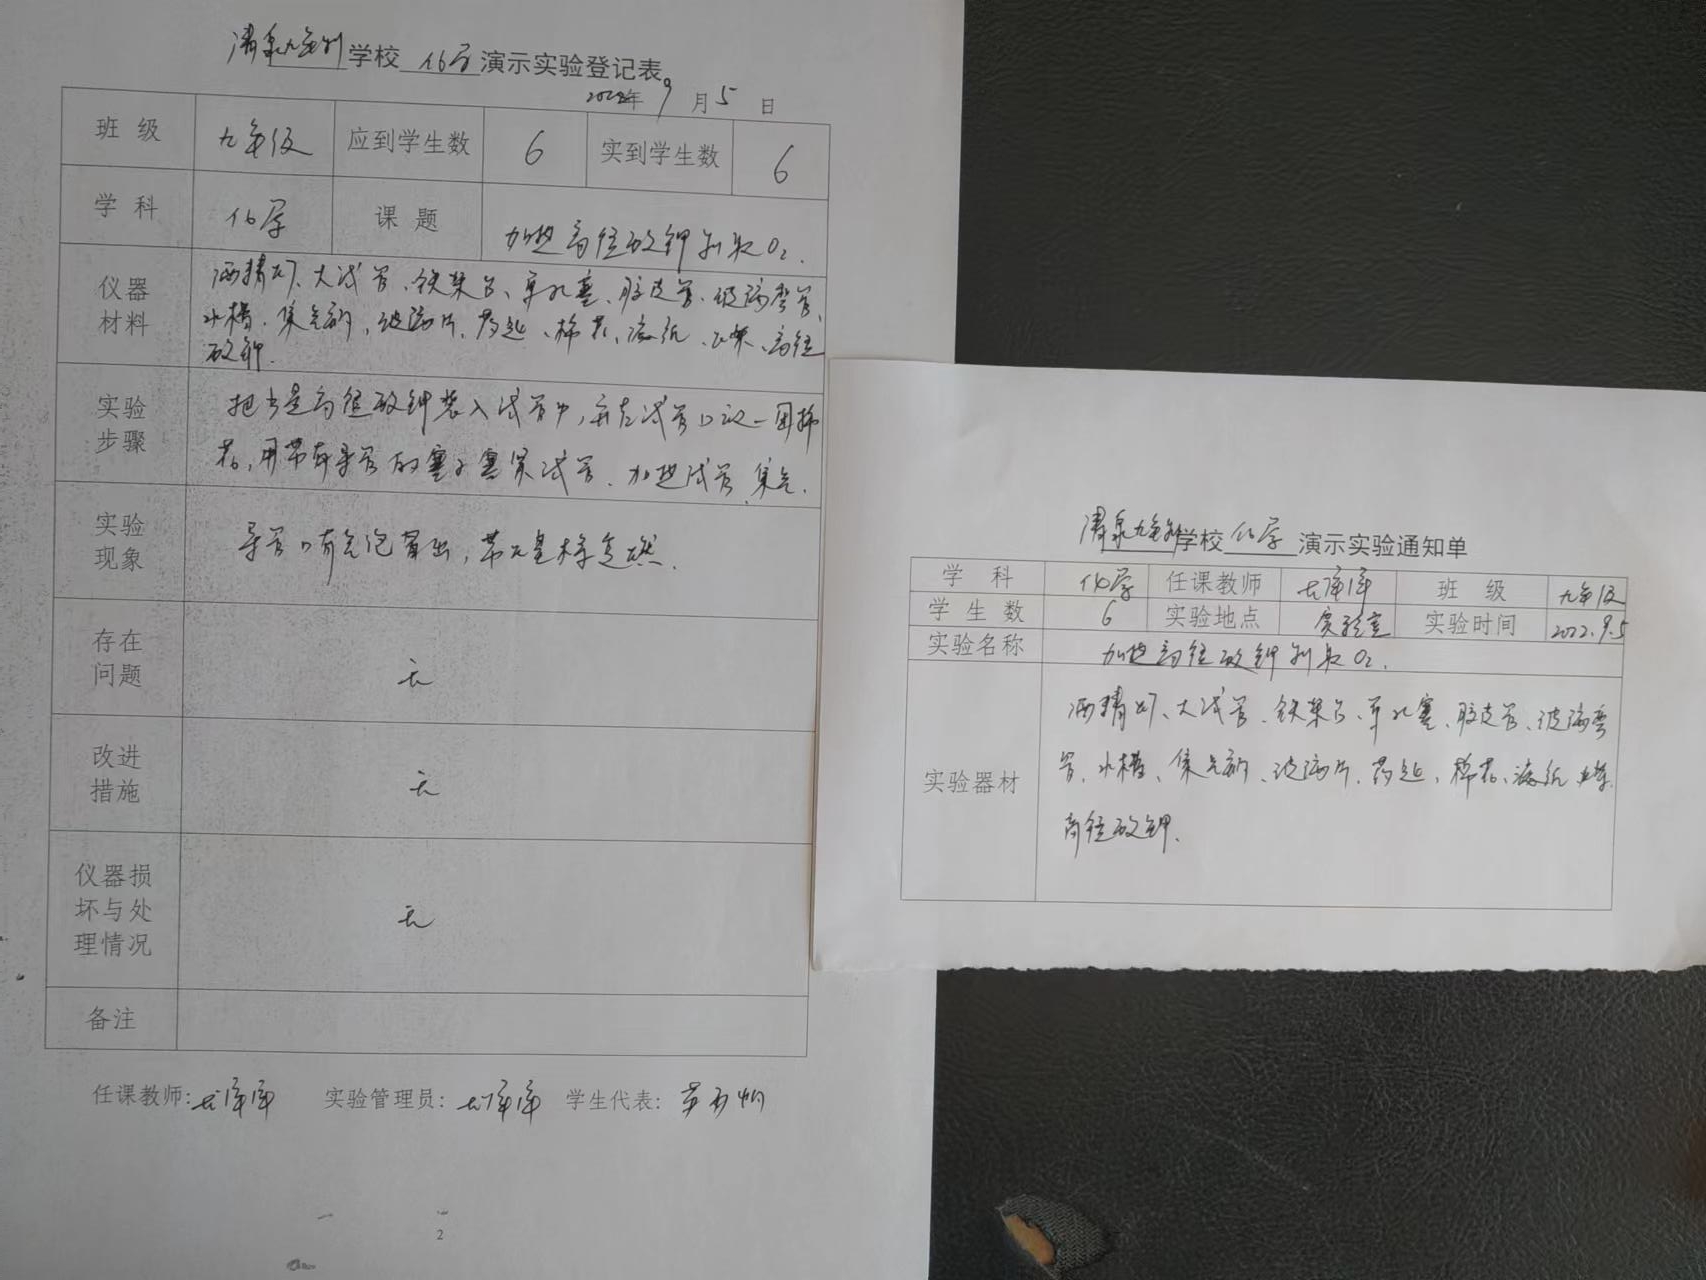 清泉九年制学校 化学 演示实验登记表
2022年9月5日
班级 九年级 应到学生数 6 实到学生数 6
学科 化学 课题 加热高锰酸钾制取O₂.
仪器材料
酒精灯、大试管、铁架台、单孔塞、胶皮管、玻璃弯管、
水槽、集气瓶、玻璃片、药匙、棉花、滤纸、火柴、高锰
酸钾.
实验步骤
把少量高锰酸钾装入试管中,并在试管口放一团棉
花,用带有导管的塞子塞紧试管、加热试管、集气.
实验现象
导管口有气泡冒出,带火星木条复燃.
存在问题
无
改进措施
无
仪器损坏与处理情况
无
备注
任课教师: 实验管理员: 学生代表:
2
清泉九年制学校 化学 演示实验通知单
学科 化学 任课教师 班级 九年级
学生数 6 实验地点 实验室 实验时间 2022.9.5
实验名称 加热高锰酸钾制取O₂.
实验器材
酒精灯、大试管、铁架台、单孔塞、胶皮管、玻璃弯
管、水槽、集气瓶、玻璃片、药匙、棉花、滤纸 火柴.
高锰酸钾.